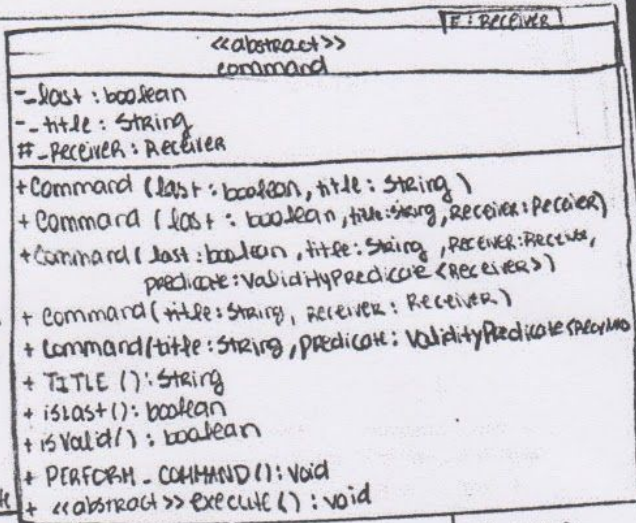 E : Receiver
<<abstract>>
command
-_last : boolean
-_title : String
#_Receiver : Receiver
+ Command (last : boolean, title : String)
+ Command (last : boolean, title : String, Receiver : Receiver)
+ Command( last : boolean, title : String, Receiver : Receiver,
predicate : ValidityPredicate <Receiver>)
+ Command(title : String, Receiver : Receiver)
+ Command(title : String, predicate : ValidityPredicate
+ TITLE () : String
+ isLast() : boolean
+ isValid() : boolean
+ PERFORM_COMMAND() : Void
+ <<abstract>> execute () : void